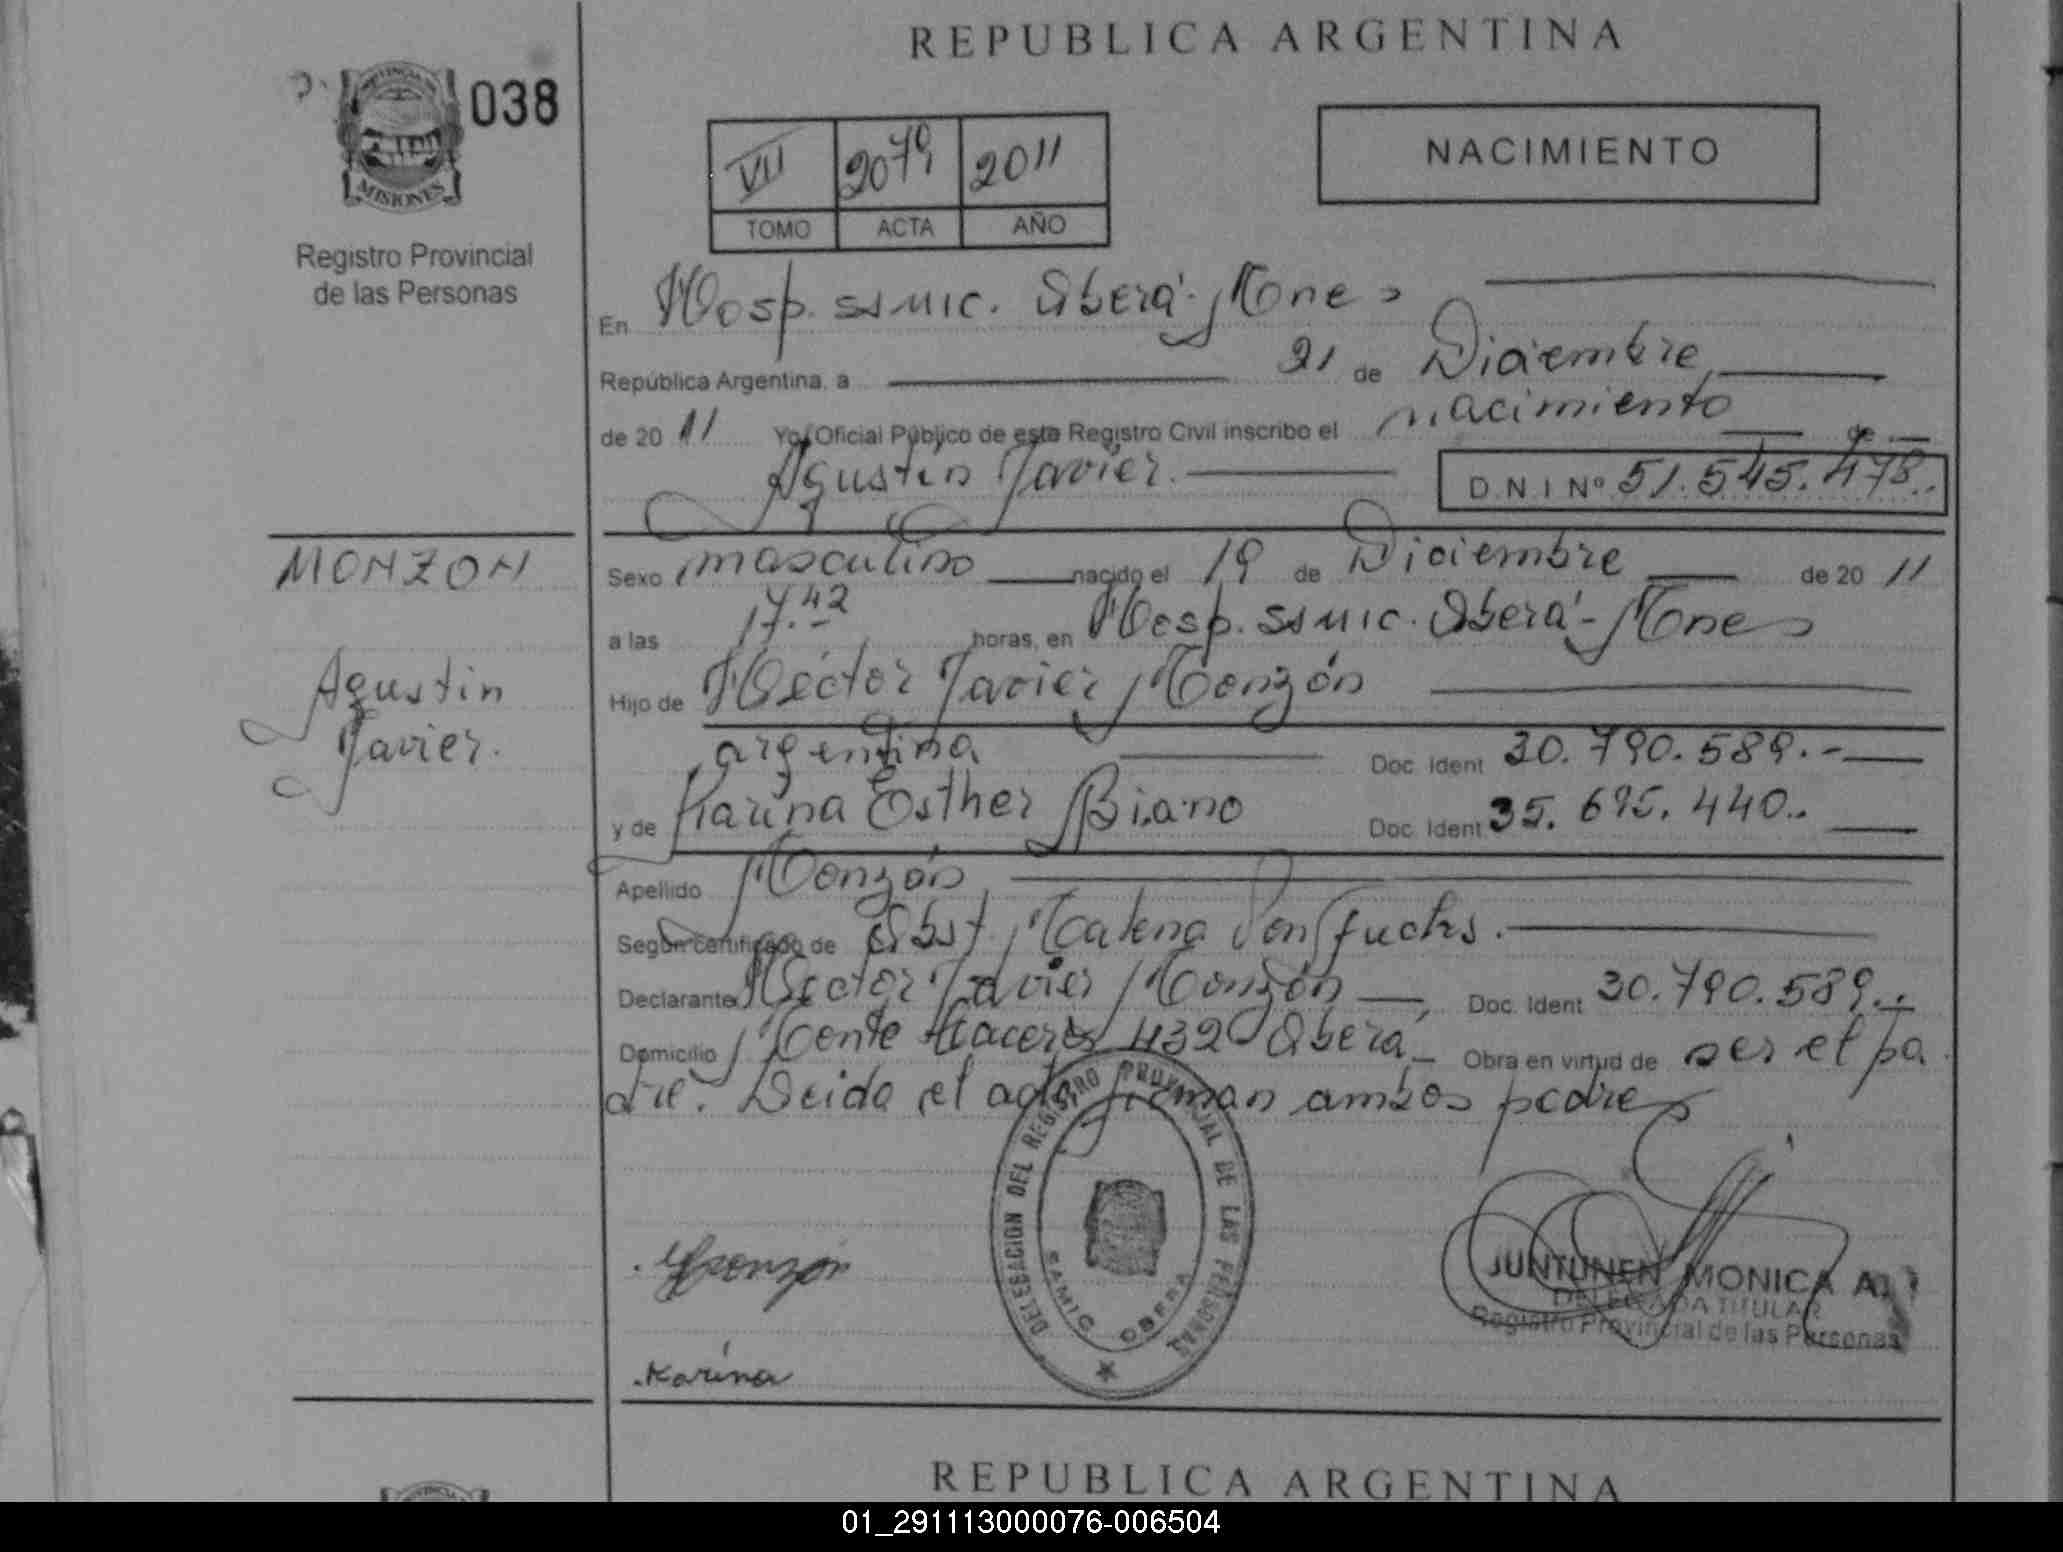 REPUBLICA ARGENTINA
PROVINCIA DE
MISIONES
038
Registro Provincial
de las Personas
VII 2079 2011
TOMO ACTA AÑO
NACIMIENTO
En Hosp. SAMIC. Oberá - Mnes
República Argentina, a 21 de Diciembre
de 2011 Yo, Oficial Público de este Registro Civil inscribo el nacimiento de
Agustin Javier. D.N.I Nº 51.545.478..
MONZON
Agustin
Javier.
Sexo masculino nacido el 19 de Diciembre de 2011
a las 17.42 horas, en Hosp. SAMIC. Oberá - Mnes
Hijo de Héctor Javier Monzón
argentina Doc. Ident 30.790.589.-
y de Karina Esther Doc. Ident 35.695.440..
Apellido Monzón
Según certificado de Obst. Malena Von Fuchs.
Declarante Hector Javier Monzón, Doc. Ident 30.790.589..
Domicilio Monte Caceros 432 Oberá Obra en virtud de ser el pa
dre. Leida el acta firman ambos padres
DELEGACION DEL REGISTRO PROVINCIAL DE LAS PERSONAS
SAMIC OBERA
Monzón
Karina
JUNTUNEN MONICA A.
DELEGADA TITULAR
Registro Provincial de las Personas
REPUBLICA ARGENTINA
01_291113000076-006504